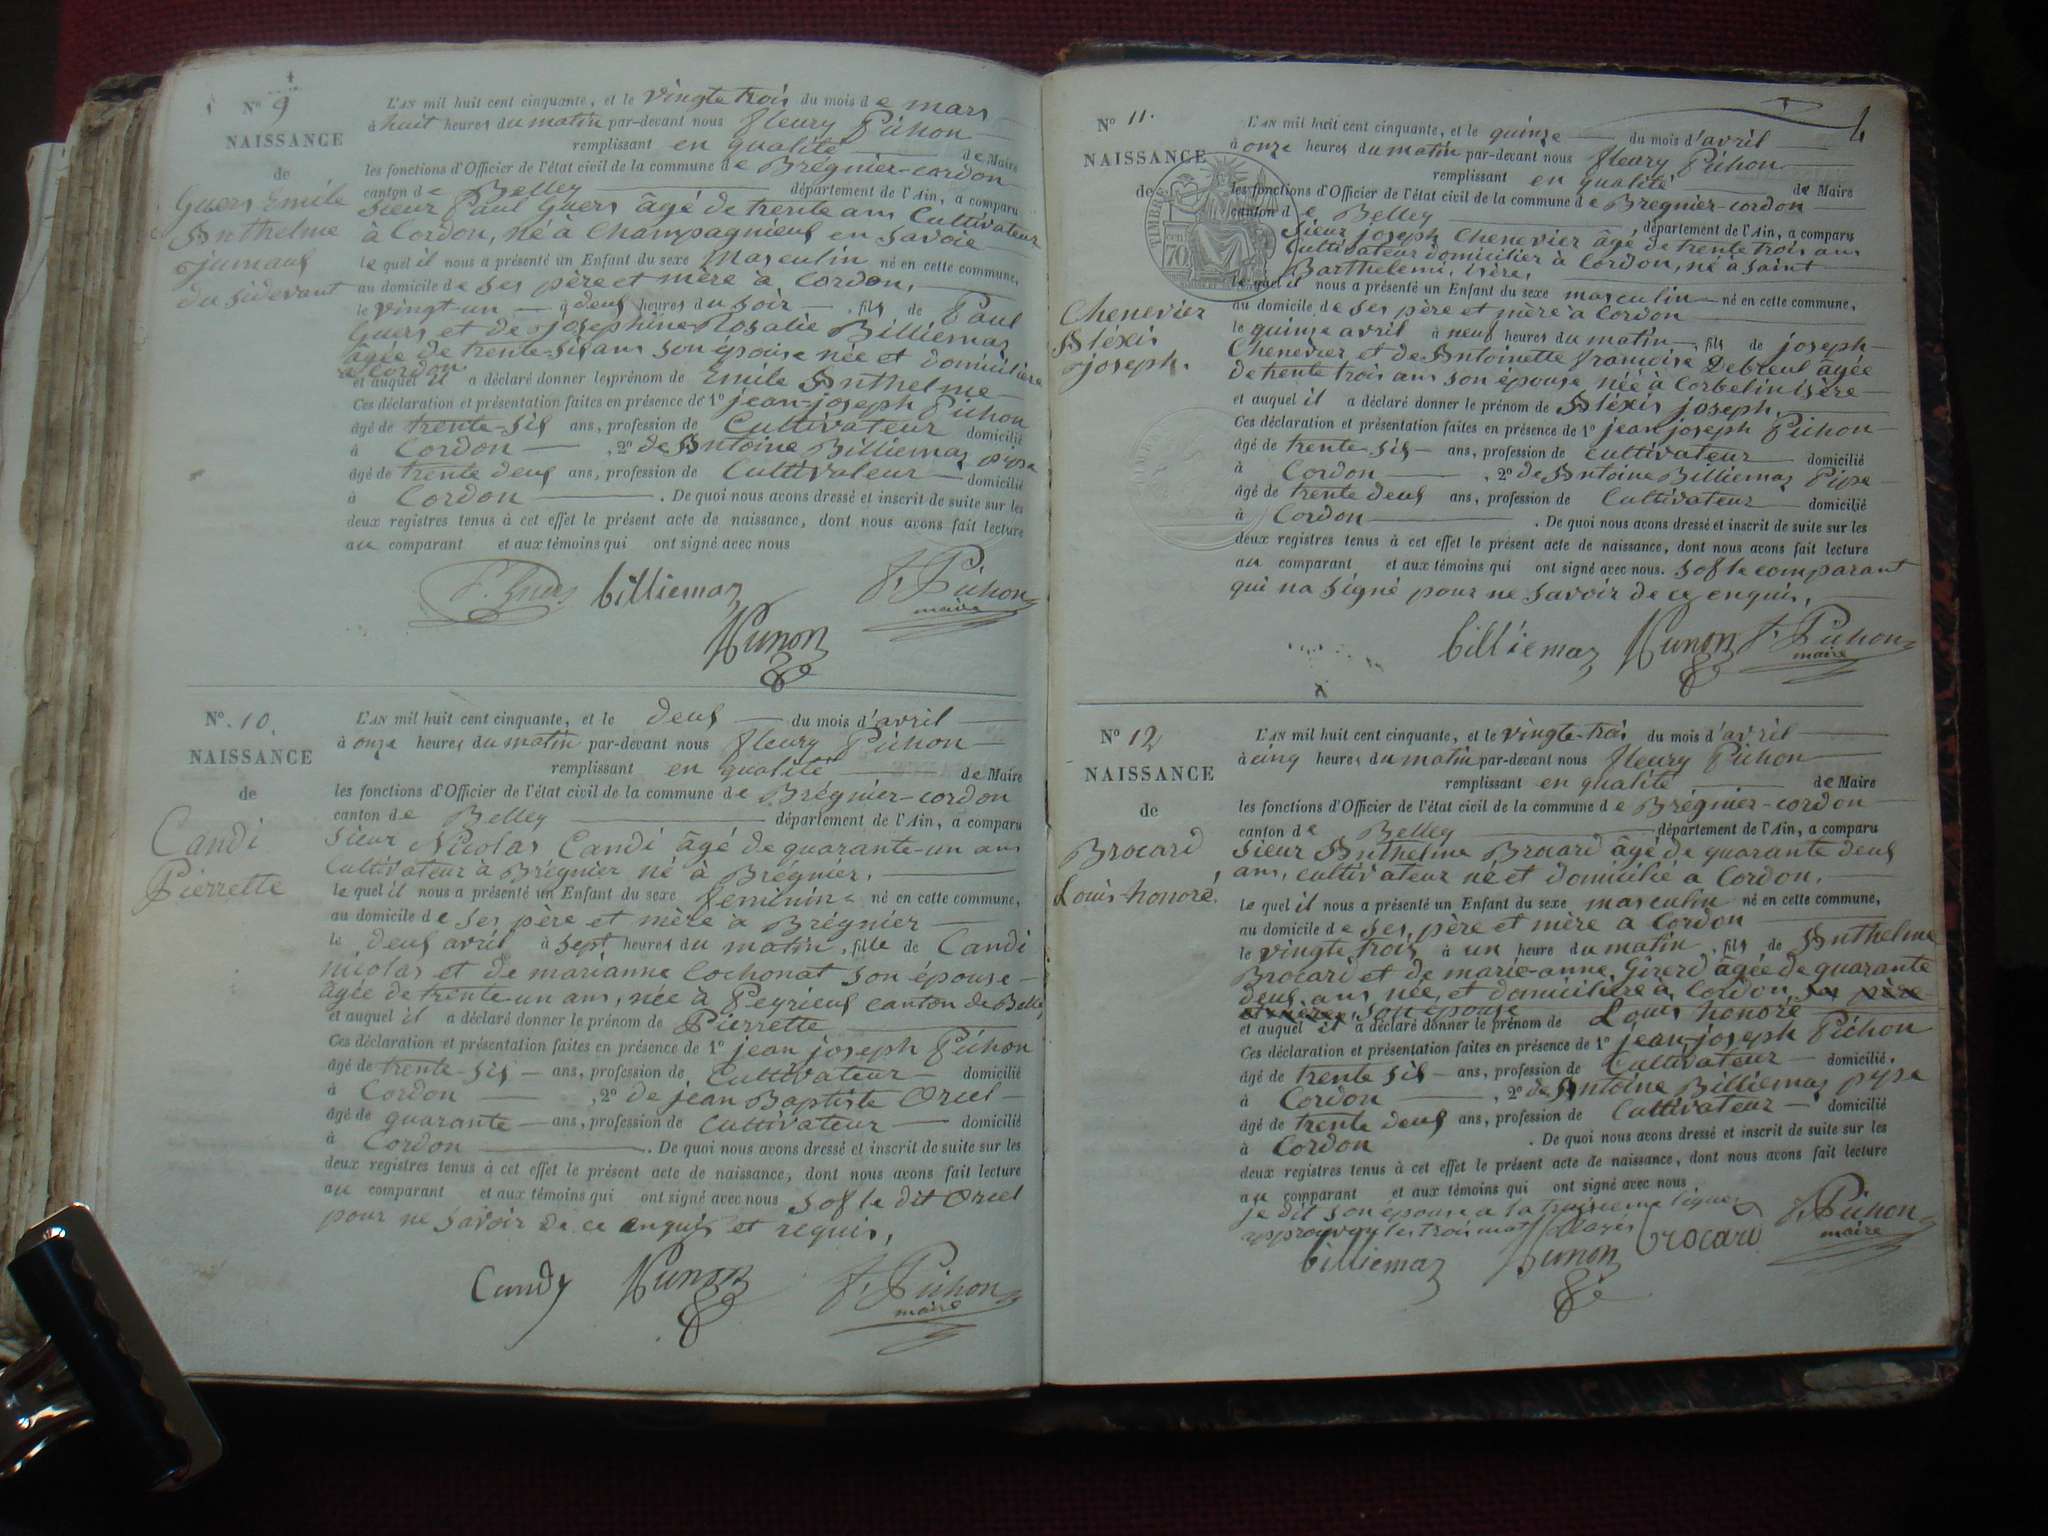 N° 9
NAISSANCE
de
Guers Emile
Anthelme
jumaux
du sidevant
L'AN mil huit cent cinquante, et le vingte trois du mois de mars
à huit heures du matin par-devant nous fleury Pichon
remplissant en qualité de Maire
les fonctions d'Officier de l'état civil de la commune de Brégnier-cordon
canton de Belley département de l'Ain, a comparu
Sieur Paul Guers âgé de trente ans Cultivateur
à Cordon, né à Champagnieux en Savoie
le quel il nous a présenté un Enfant du sexe Masculin né en cette commune,
au domicile de ses père et mère à Cordon,
le vingt-un à deux heures du soir, fils de Paul
Guers et de josephine Rosalie Billiemaz
âgée de trente-six ans son épouse née et domicilière
à Cordon
et auquel il a déclaré donner les prénom de Emile Anthelme
Ces déclaration et présentation faites en présence de 1° jean-joseph Pichon
âgé de trente-six ans, profession de Cultivateur domicilié
à Cordon, 2° de Antoine Billiemaz pype
âgé de trente deux ans, profession de Cultivateur domicilié
à Cordon. De quoi nous avons dressé et inscrit de suite sur les
deux registres tenus à cet effet le présent acte de naissance, dont nous avons fait lecture
au comparant et aux témoins qui ont signé avec nous
P. Guers billiemaz f. Pichon
maire
N° 10.
NAISSANCE
de
Candi
Pierrette
L'AN mil huit cent cinquante, et le deux du mois d'avril
à onze heures du matin par-devant nous fleury Pichon
remplissant en qualité de Maire
les fonctions d'Officier de l'état civil de la commune de Brégnier-cordon
canton de Belley département de l'Ain, a comparu
Sieur Nicolas Candi âgé de quarante-un ans
Cultivateur à Brégnier né à Brégnier.
le quel il nous a présenté un Enfant du sexe feminine né en cette commune,
au domicile de ses père et mère à Brégnier
le deux avril à sept heures du matin, fille de Candi
nicolas et de marianne Cochonat son épouse
âgée de trente-un ans, née à Peyrieux canton de Belle
et auquel il a déclaré donner le prénom de Pierrette
Ces déclaration et présentation faites en présence de 1° jean joseph Pichon
âgé de trente-six ans, profession de Cultivateur domicilié
à Cordon, 2° de jean Baptiste Orcel
âgé de quarante ans, profession de Cultivateur domicilié
à Cordon. De quoi nous avons dressé et inscrit de suite sur les
deux registres tenus à cet effet le présent acte de naissance, dont nous avons fait lecture
au comparant et aux témoins qui ont signé avec nous sof le dit Orcel
pour ne savoir de ce enquis et requis,
Candy f. Pichon
maire
4
N° 11.
NAISSANCE
de
Chenevier
Aléxis
joseph.
TIMBRE
cen 70
L'AN mil huit cent cinquante, et le quinze du mois d'avril
à onze heures du matin par-devant nous fleury Pichon
remplissant en qualité de Maire
les fonctions d'Officier de l'état civil de la commune de Bregnier-cordon
canton de Belley, département de l'Ain, a comparu
Sieur joseph Chenevier âgé de trente trois ans
Cultivateur domicilier à Cordon, né à Saint
Barthelemi, isère,
le quel il nous a présenté un Enfant du sexe masculin né en cette commune,
au domicile de ses père et mère à Cordon
le quinze avril à neuf heures du matin, fils de joseph
Chenevier et de Antoinette françoise Debreul âgée
de trente trois ans son épouse née à Corbelin isère
et auquel il a déclaré donner le prénom de Aléxis joseph.
Ces déclaration et présentation faites en présence de 1° jean joseph Pichon
âgé de trente-six ans, profession de Cultivateur domicilié
à Cordon, 2° de Antoine Billiemaz Pipe
âgé de trente deux ans, profession de Cultivateur domicilié
à Cordon. De quoi nous avons dressé et inscrit de suite sur les
deux registres tenus à cet effet le présent acte de naissance, dont nous avons fait lecture
au comparant et aux témoins qui ont signé avec nous. sof le comparant
qui na signé pour ne savoir de ce enquis,
billiemaz f. Pichon
maire
N° 12
NAISSANCE
de
Brocard
Louis honoré.
L'AN mil huit cent cinquante, et le vingte-trois du mois d'avril
à cinq heures du matin par-devant nous fleury Pichon
remplissant en qualité de Maire
les fonctions d'Officier de l'état civil de la commune de Brégnier-cordon
canton de Belley département de l'Ain, a comparu
Sieur Anthelme Brocard âgé de quarante deux
ans, cultivateur né et domicilié a Cordon.
le quel il nous a présenté un Enfant du sexe masculin né en cette commune,
au domicile de ses père et mère a Cordon
le vingte trois à un heure du matin, fils de Anthelme
Brocard et de marie-anne Girerd âgée de quarante
deux ans née et domicilière à Cordon ses père
et mère son épouse
et auquel il a déclaré donner le prénom de Louis honoré
Ces déclaration et présentation faites en présence de 1° jean-joseph Pichon
âgé de trente six ans, profession de Cultivateur domicilié.
à Cordon, 2° de Antoine Billiemaz pype
âgé de trente deux ans, profession de Cultivateur domicilié
à Cordon. De quoi nous avons dressé et inscrit de suite sur les
deux registres tenus à cet effet le présent acte de naissance, dont nous avons fait lecture
au comparant et aux témoins qui ont signé avec nous
je dit son épouse a la troisieme ligne
approuvon les trois mots Rayes
billiemaz Brocard f. Pichon
maire